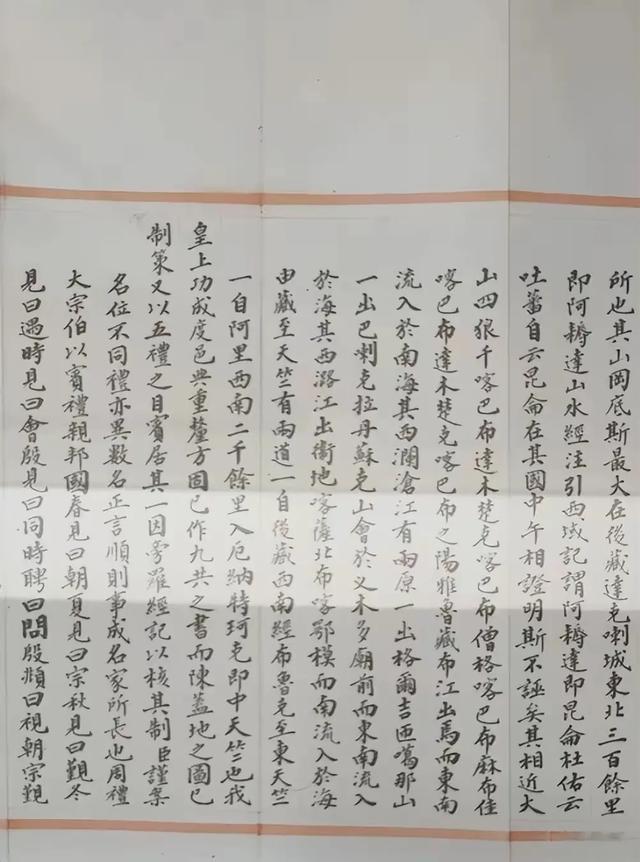 所也其山岡底斯最大在後藏達克喇城東北三百餘里
即阿耨達山水經注引西域記謂阿耨達即昆侖杜佑云
吐蕃自云昆侖在其國中午相證明斯不誣矣其相近大
山四狼千喀巴布達木楚克喀巴布僧格喀巴布麻布佳
喀巴布達木楚克喀巴布之陽雅魯藏布江出焉而東南
流入於南海其西瀾滄江有兩原一出格爾吉匝噶那山
一出巴喇克拉丹蘇克山會於义木多廟前而東南流入
於海其西潞江出衞地喀薩北布喀鄂模而南流入於海
由藏至天竺有兩道一自後藏西南經布魯克至東天竺
一自阿里西南二千餘里入厄納特珂克即中天竺也我
皇上功成度邑典重釐方固已作九共之書而陳蓋地之圖已
制策又以五禮之目賓居其一因旁羅經記以核其制臣謹案
名位不同禮亦異數名正言順則事成名家所長也周禮
大宗伯以賓禮親邦國春見曰朝夏見曰宗秋見曰覲冬
見曰遇時見曰會殷見曰同時聘曰問殷頫曰視朝宗覲